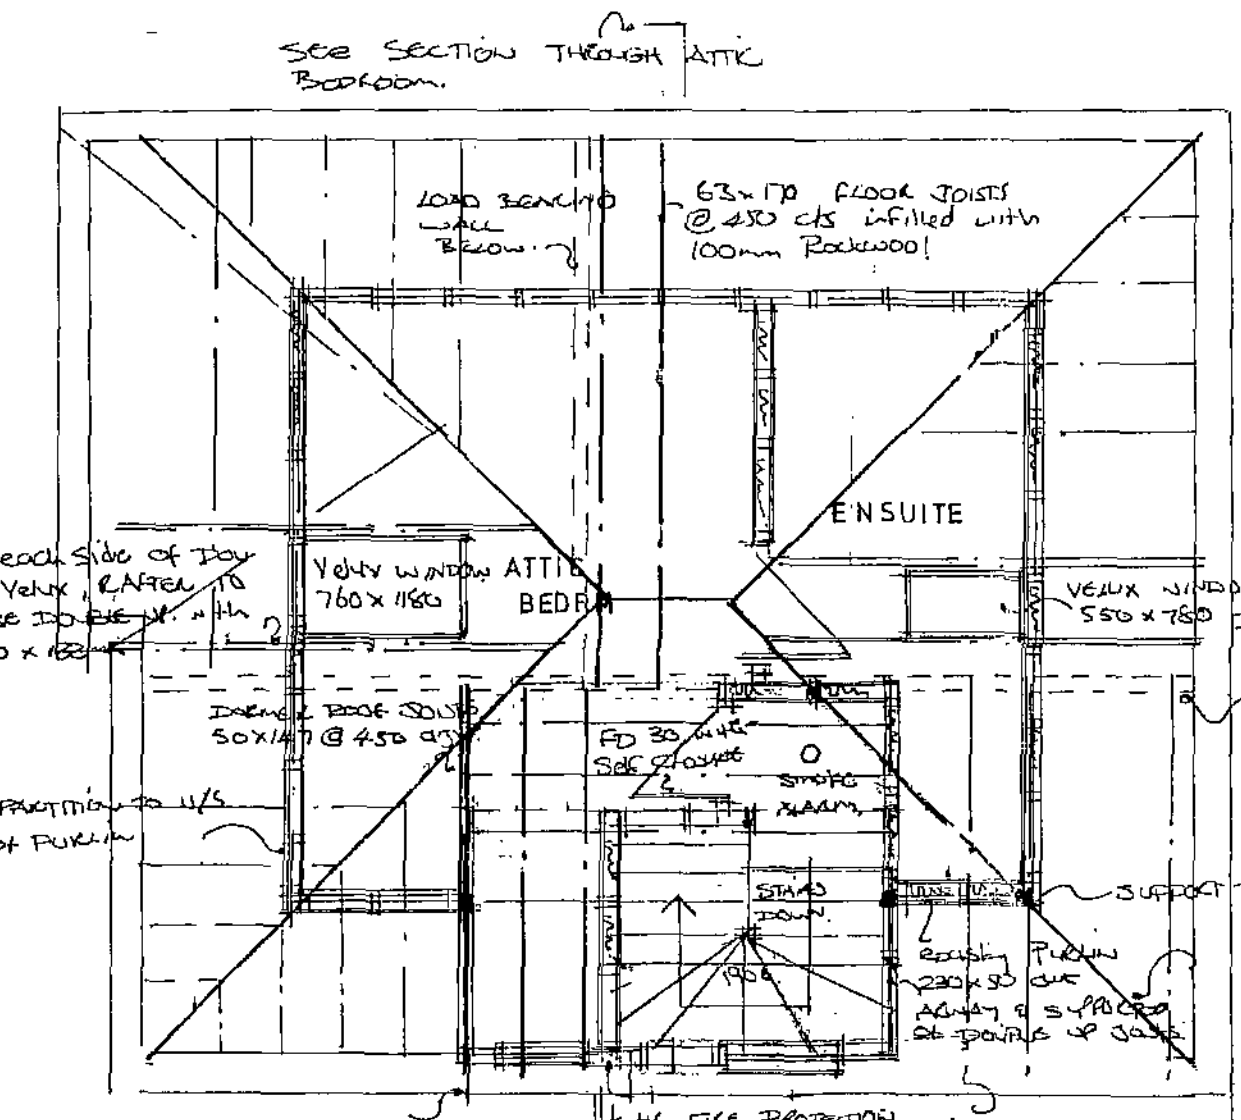 SEE SECTION THROUGH ATTIC
BEDROOM.
LOAD BEARING
WALL
BELOW.
63x170 FLOOR JOISTS
@ 450 c/s infilled with
100mm Rockwool
ENSUITE
each side of
Velux, RAFTER TO
DOUBLE UP with
VELUX WINDOW
760 x 1180
ATTIC
BEDR
VELUX WINDO
550 x 780
DORMER ROOF JOISTS
50x147 @ 450 c/s
FD 30 with
Self Closer
SMOKE
ALARM
PARTITION TO U/S
of PURLIN
STAIRS
DOWN.
SUPPORT
EXISTING PURLIN
230x50 CUT
AWAY & SUPPORTED
DOUBLE UP JOISTS
FIRE PROTECTION